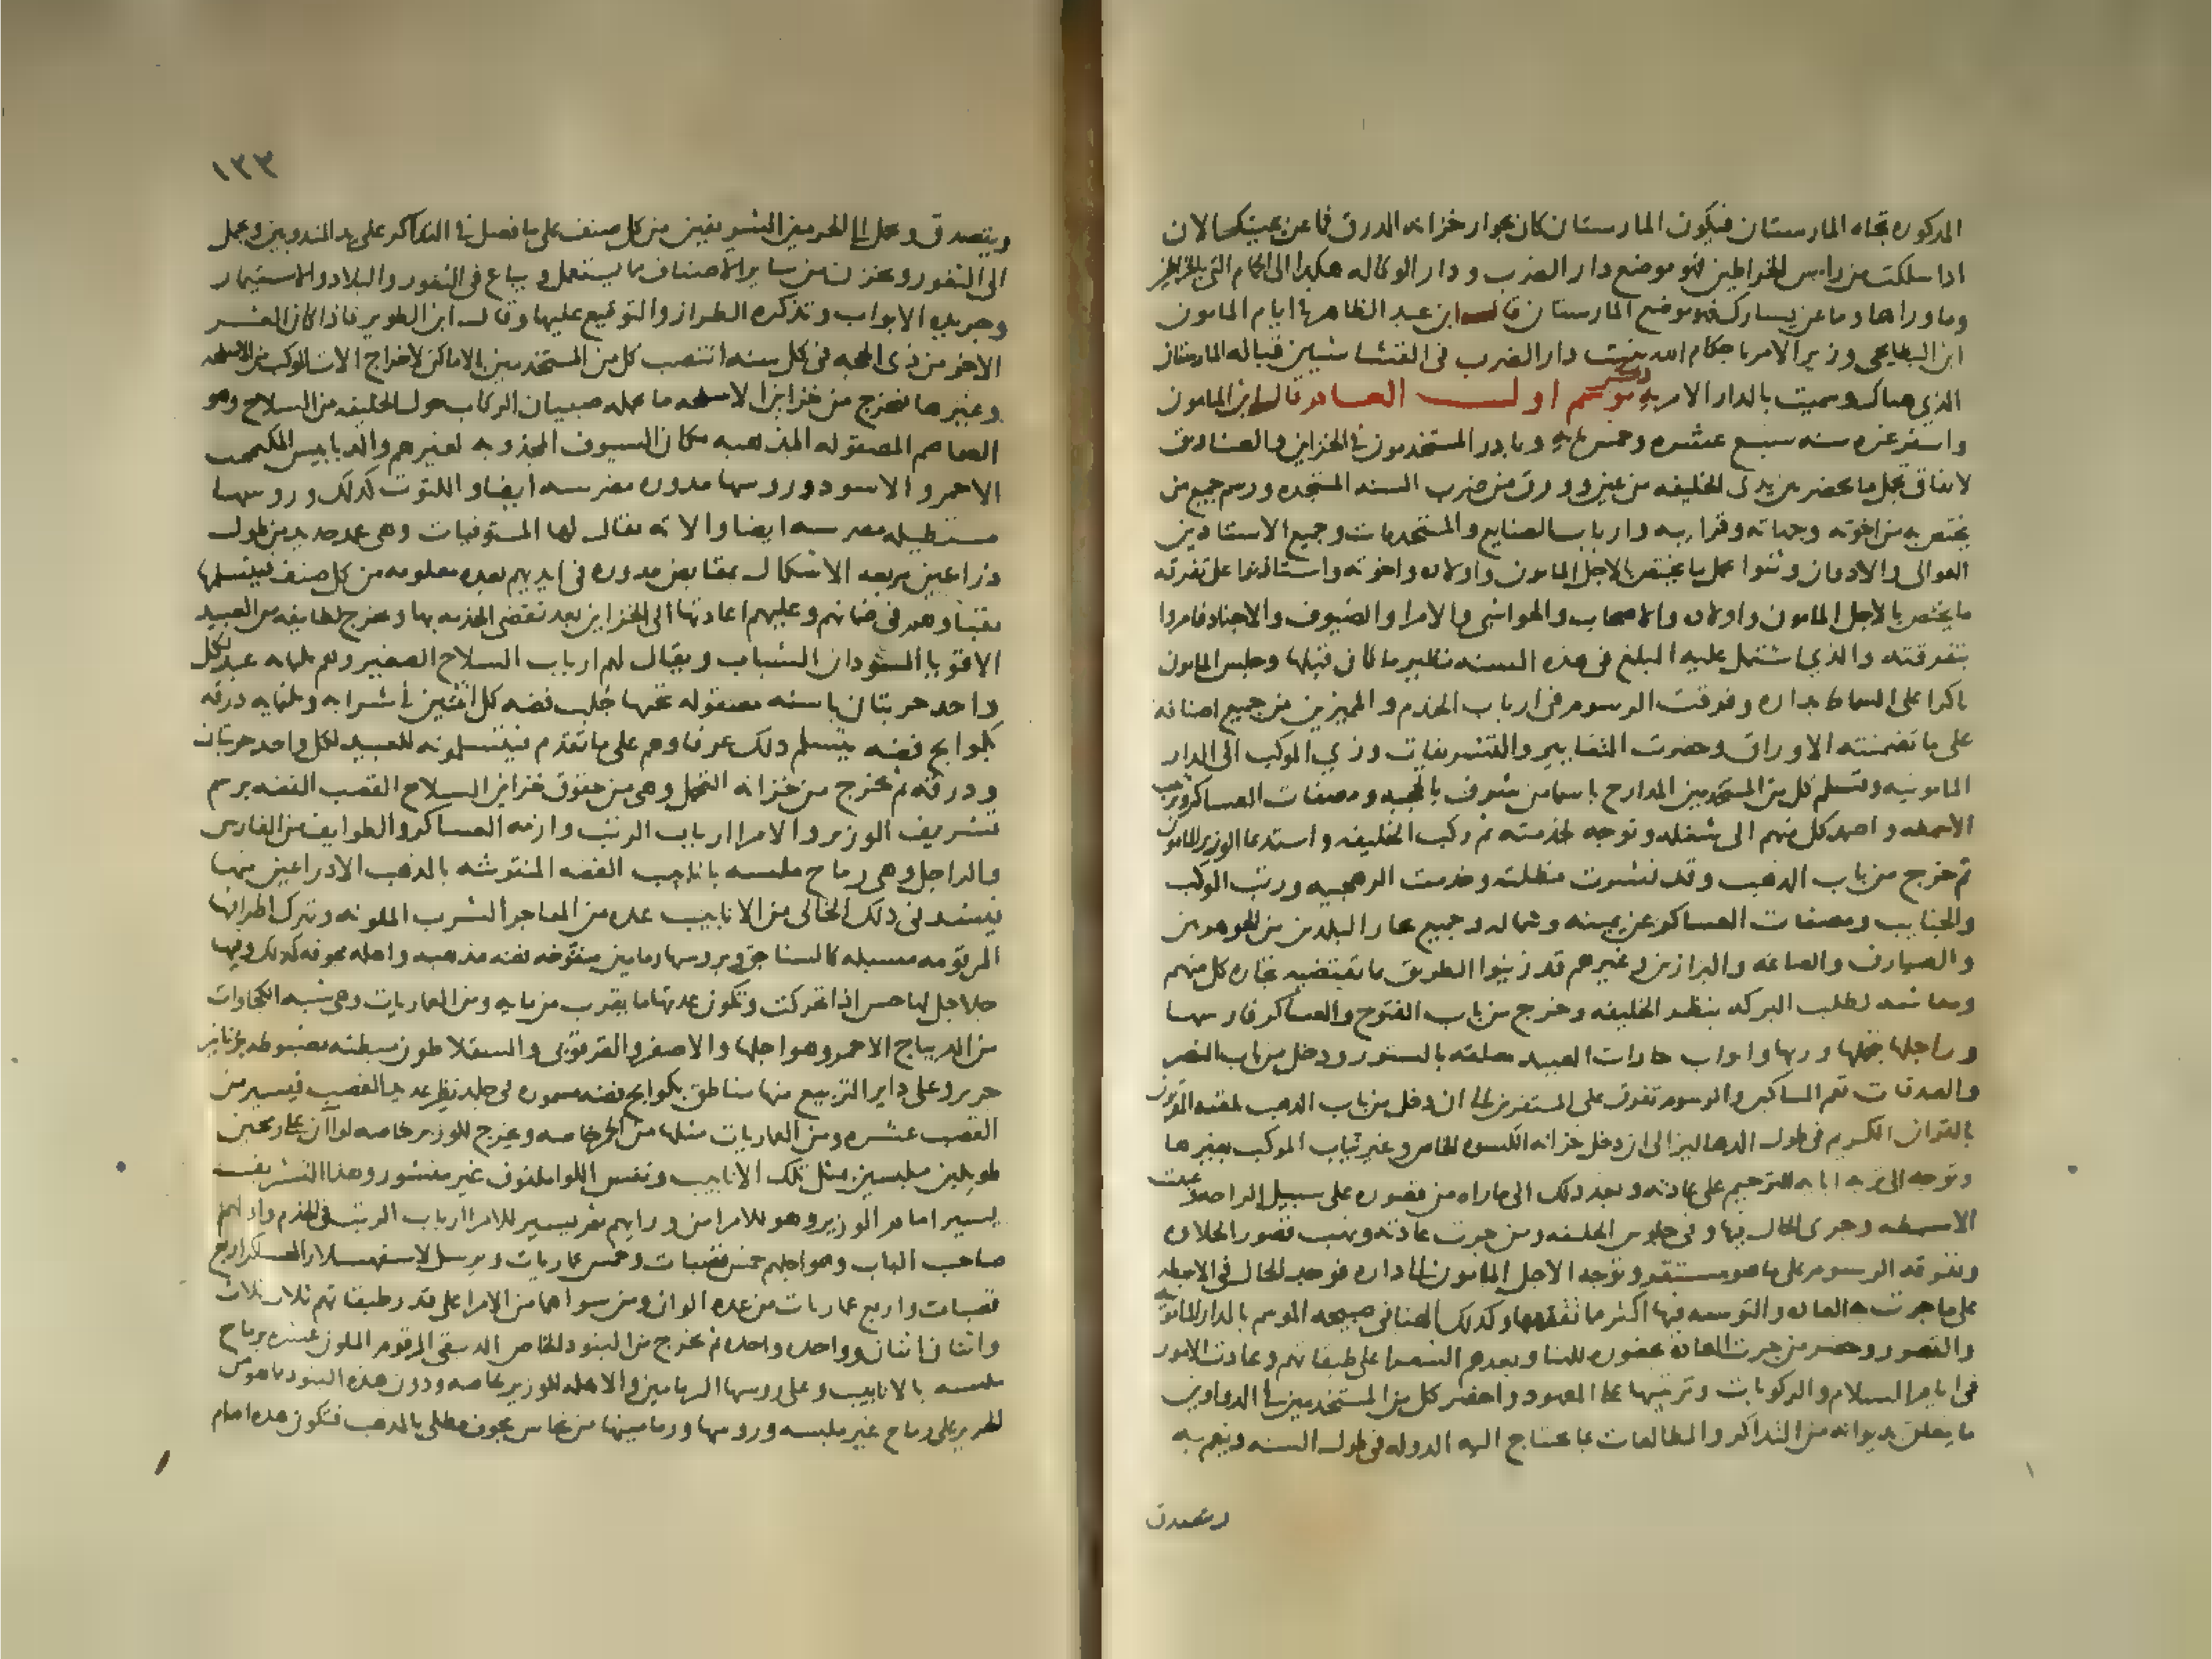 المدكوره تجاه المارستان فيكون المارستان كان بجوار خزانه الدرق فما عن يمينك الان
اذا سلكت من راس الخراطين فهو موضع دار الضرب ودار الوكاله هكدا الى الحمام التى بالخراطين
وما وراها وما عن يسارك فهو موضع المارستان قال ابن عبد الظاهر في ايام المامون
ابن البطايحي وزير الامر باحكام الله بنيت دار الضرب فى القشاشين قباله المارستان
الذي هناك وسميت بالدار الامريه ذكر موسم اول العام قال ابن المامون
واسفر غره سنه سبع عشره وخمس مايه وبادر المستخدمون في الخزاين والصناديق
لانفاق بحمل ما يحضر بين يدى الخليفه من عين وورق من ضرب السنه المستجده ورسم جميع من
يختص به من اخوته وجهاته وقرابه وارباب الصنايع والمستخدمات وجميع الاستادين
العوالى والادوان وثنوا بحمل ما يختص بالاجل المامون واولاده واخوته واستاذنوا على تفرقه
ما يختص بالاجل المامون واولاده والاصحاب والحواشى والامرا والضيوف والاجناد فامروا
بتفرقته والذي اشتمل عليه المبلغ فى هذه السنه نظير ما كان قبلها وجلس المامون
باكرا على السماط بداره وفرقت الرسوم فى ارباب الخدم والمميزين من جميع اصنافه
على ما تضمنته الاوراق وحضرت التعابير والتشريفات وزي الموكب الى الدار
المامونيه وتسلم كل من المستخدمين المدارج باسما من شرف بالحجبه ومصفات العساكر وترتيب
الاسمطه واصعد كل منهم الى شغله وتوجه لخدمته ثم ركب الخليفه واستدعا الوزير المامون
ثم خرج من باب الدهب وقد نشرت مظلته وخدمت الرهجيه ورتب الموكب
والجنايب ومصفات العساكر عن يمينه وشماله وجميع تجار البلدين من الجوهريين
والصيارف والصاغه والبزازين وغيرهم قد زينوا الطريق بما تقتضيه تجاره كل منهم
ومعاشه لطلب البركه بنظر الخليفه وخرج من باب الفتوح والعساكر فارسها
وراجلها بتجملها وزيها وابواب حارات العبيد معلقه بالستور ودخل من باب النصر
والصدقات تعم المساكين والرسوم تفرق على المستقرين الى ان دخل من باب الدهب فلقيه المقريون
بالقران الكريم فى طول الدهاليز الى ان دخل خزانه الكسوه الخاص وغير ثياب الموكب بغيرها
وتوجه الى تربه ابايه للترحيم على عادته وبعد دلك الى ما راه من قصوره على سبيل الراحه وعبيت
الاسمطه وجرى الحال فيها وفى جلوس الخليفه ومن جرت عادته وتهيب قصور الخلافه
وتفرقه الرسوم على ما هو مستقر وتوجه الاجل المامون الى داره فوجد الحال فى الاسمطه
على ما جرت به العاده والتوسعه فيها اكثر مما تقدمها وكدلك الهنا فى صبيحه الموسم بالدار المامونيه
والقصور وحضر من جرت العاده بحضوره للهنا وبعدهم الشعرا على طبقاتهم وعادت الامور
فى ايام السلام والركوبات وترتيبها على المعهود واحضر كل من المستخدمين في الدواوين
ما يتعلق بديوانه من التذاكر والمطالعات بما تحتاج اليه الدوله فى طول السنه وينعم به
ويتصدق
١٣٣
ويتصدق وحمل الى الحرمين الشريفين من كل صنف على ما فصل في التذاكر على يد المندوبين وحمل
الى الثغور ويخزن من ساير الاصناف ما يستعمل ويباع فى الثغور والبلاد والاستيمار
وجريده الابواب وتذكره الطراز والتوقيع عليها وقال ابن الطوير فاذا كان العشر
الاخر من ذى الحجه فى كل سنه انتصب كل من المستخدمين بالاماكن لاخراج الات الموكب من الاسلحه
وغيرها فيخرج من خزاين الاسلحه ما يحمله صبيان الركاب حول الخليفه من السلاح وهو
الصماصم المصقوله المذهبه مكان السيوف المجذوبه لغيرهم والدبابيس الملبسه
الاحمر والاسود وروسها مدوره مضرسه ايضا واللتوت كذلك وروسها
مستطيله مضرسه ايضا والات يقال لها المستوفيات وهى عمد حديد من طول
ذراعين مربعه الاشكال بمقابض مدوره فى ايديهم بعده معلومه من كل صنف فيتسلمها
نقباوهم فى ضمانهم وعليهم اعادتها الى الخزاين بعد تقضى الخدمه بها ويخرج لطايفه من العبيد
الاقويا السودان الشباب ويقال لهم ارباب السلاح الصغير وهم ثلثمايه عبد لكل
واحد حربتان باسنه مصقوله تحتها جلب فضه كل اثنتين في شرابه وثلثمايه درقه
بكوابج فضه يتسلم دلك عرفاوهم على ما تقدم فيتسلمونه للعبيد لكل واحد حربتان
ودرقه ثم يخرج من خزانه التجمل وهى من حقوق خزاين السلاح القصب الفضه برسم
تشريف الوزير والامرا ارباب الرتب وازمه العساكر والطوايف من الفارس
والراجل وهى رماح ملبسه بانابيب الفضه المنقوشه بالدهب الا دراعين منها
فيشد فى دلك الخالى من الانابيب عده من المعاجر الشرب الملونه ويترك اطرافها
المرقومه مسبله كالسناجق وبروسها رمامين منفوخه فضه مذهبه واهله مجوفه كدلك وفيها
جلاجل لها حس اذا تحركت وتكون عدتها ما يقرب من مايه ومن العماريات وهى شبه الكجاوات
من الديباج الاحمر وهو اجلها والاصفر والقرقوبى والسقلاطون مبطنه مضبوطه بزنانير
حرير وعلى داير التربيع منها مناطق بكوابج فضه مسموره فى جلد نظير عدد القصب فيسير من
القصب عشره ومن العماريات مثلها من الحمر خاصه ويخرج للوزير خاصه لواان على رمحين
طويلين ملبسين مثل تلك الانابيب ونفس اللوا ملفوف غير منشور وهذا التشريف
يسير امام الوزير وهو للامرا من ورايهم ثم يسير للامرا ارباب الرتب فى الخدم واولهم
صاحب الباب وهو اجلهم خمس قصبات وخمس عماريات ويرسل لاسفهسلار العساكر اربع
قصبات واربع عماريات من عده الوان ومن سواهما من الامرا على قدر طبقاتهم ثلاث ثلاث
واثنان اثنان وواحده واحده ثم يخرج من البنود الخاص الدبيقى المرقوم الملون عشره برماح
ملبسه بالانابيب وعلى روسها الرمامين والاهله للوزير خاصه ودون هذه البنود مما هو من
الحرير على رماح غير ملبسه وروسها ورمامينها من نحاس مجوف مطلى بالدهب فتكون هذه امام